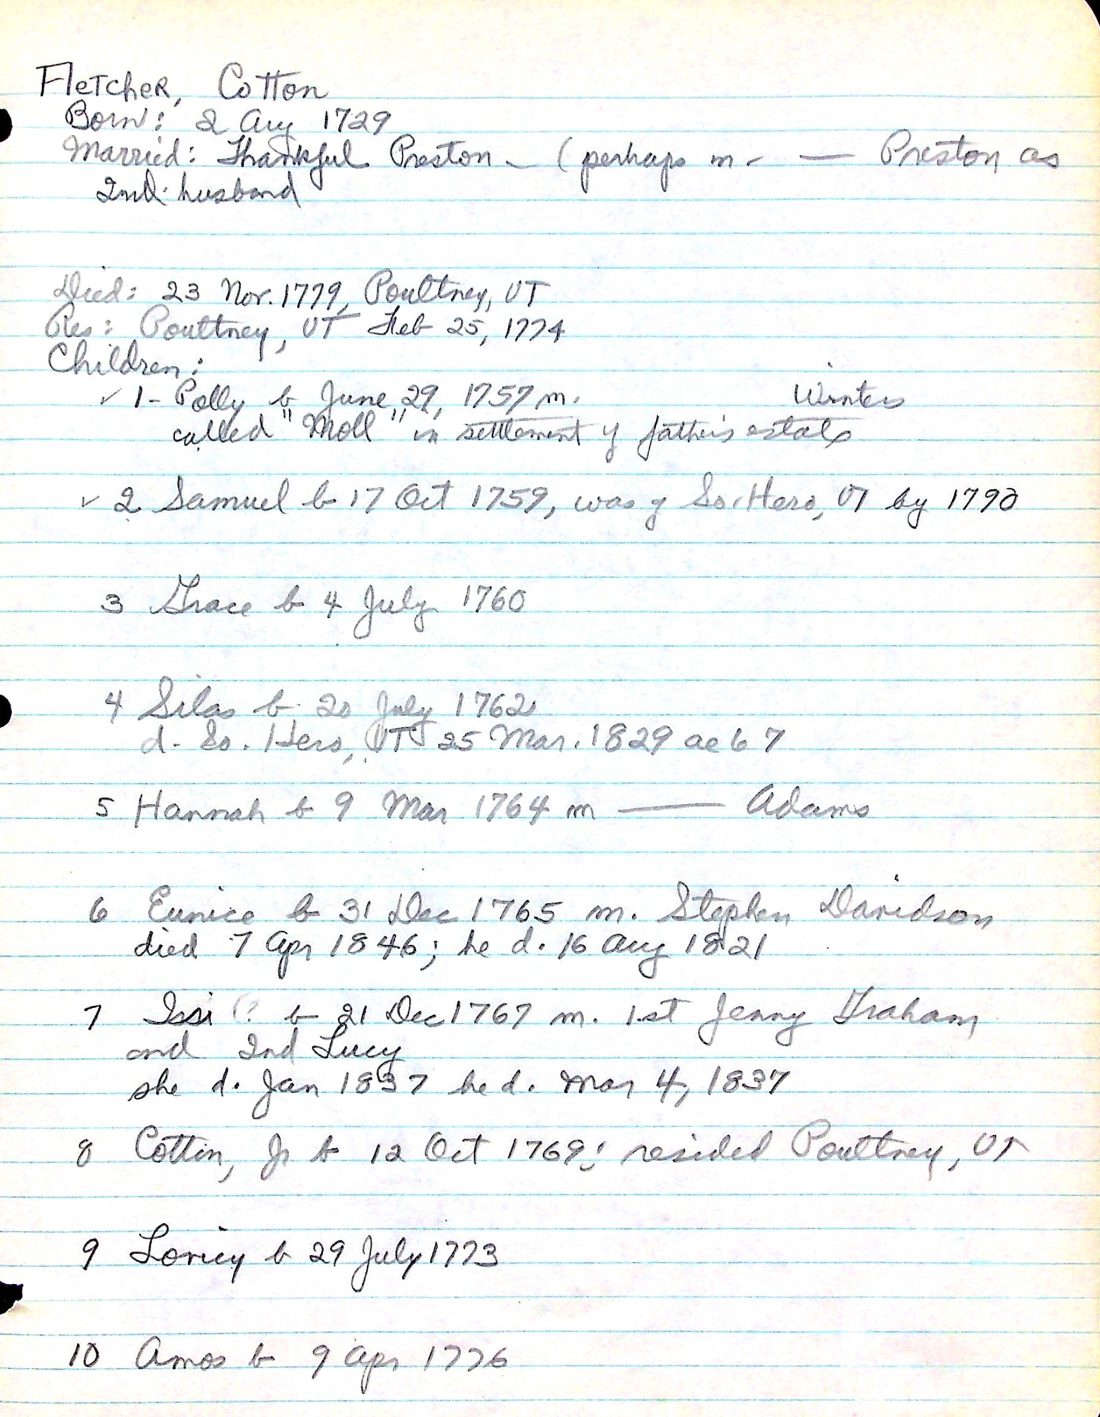 Fletcher, Cotton
Born: 2 Aug 1729
Married: Thankful Preston - (perhaps m - — Preston as
2nd husband
Died: 23 Nov. 1779, Poultney, VT
Res: Poultney, VT Feb 25, 1774
Children:
✓ 1- Polly b June 29, 1757 m. Winters
called "Moll" in settlement of father's estate
✓ 2 Samuel b 17 Oct 1759, was of So. Hero, VT by 1790
3 Grace b 4 July 1760
4 Silas b. 20 July 1762
d. So. Hero, VT 25 Mar. 1829 ae 67
5 Hannah b 9 Mar 1764 m —— Adams
6 Eunice b 31 Dec 1765 m. Stephen Davidson
died 7 Apr 1846; he d. 16 Aug 1821
7 Issi (? b 21 Dec 1767 m. 1st Jenny Graham
and 2nd Lucy
she d. Jan 1837 he d. Mar 4, 1837
8 Cottin, Jr b 12 Oct 1769; resided Poultney, VT
9 Loricy b 29 July 1773
10 Amos b 9 Apr 1776